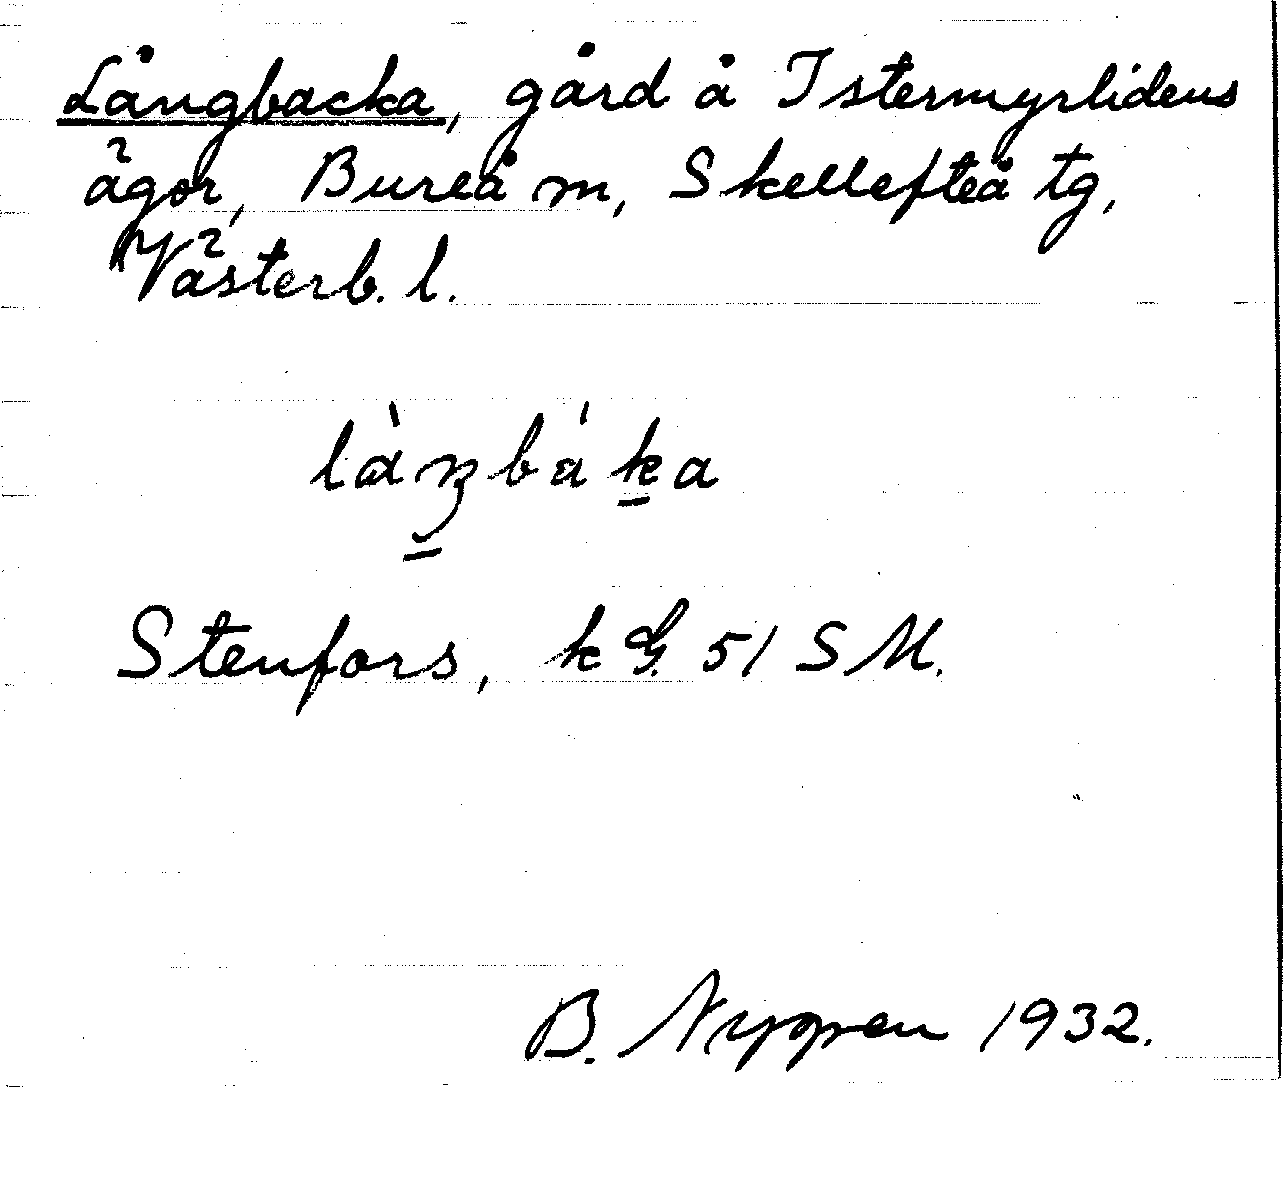 Långbacka, gård å Istermyrlidens
ägor, Bureå m, Skellefteå tg,
Västerb. l.
Stenfors, kG. 51 SM.
B. 1932.